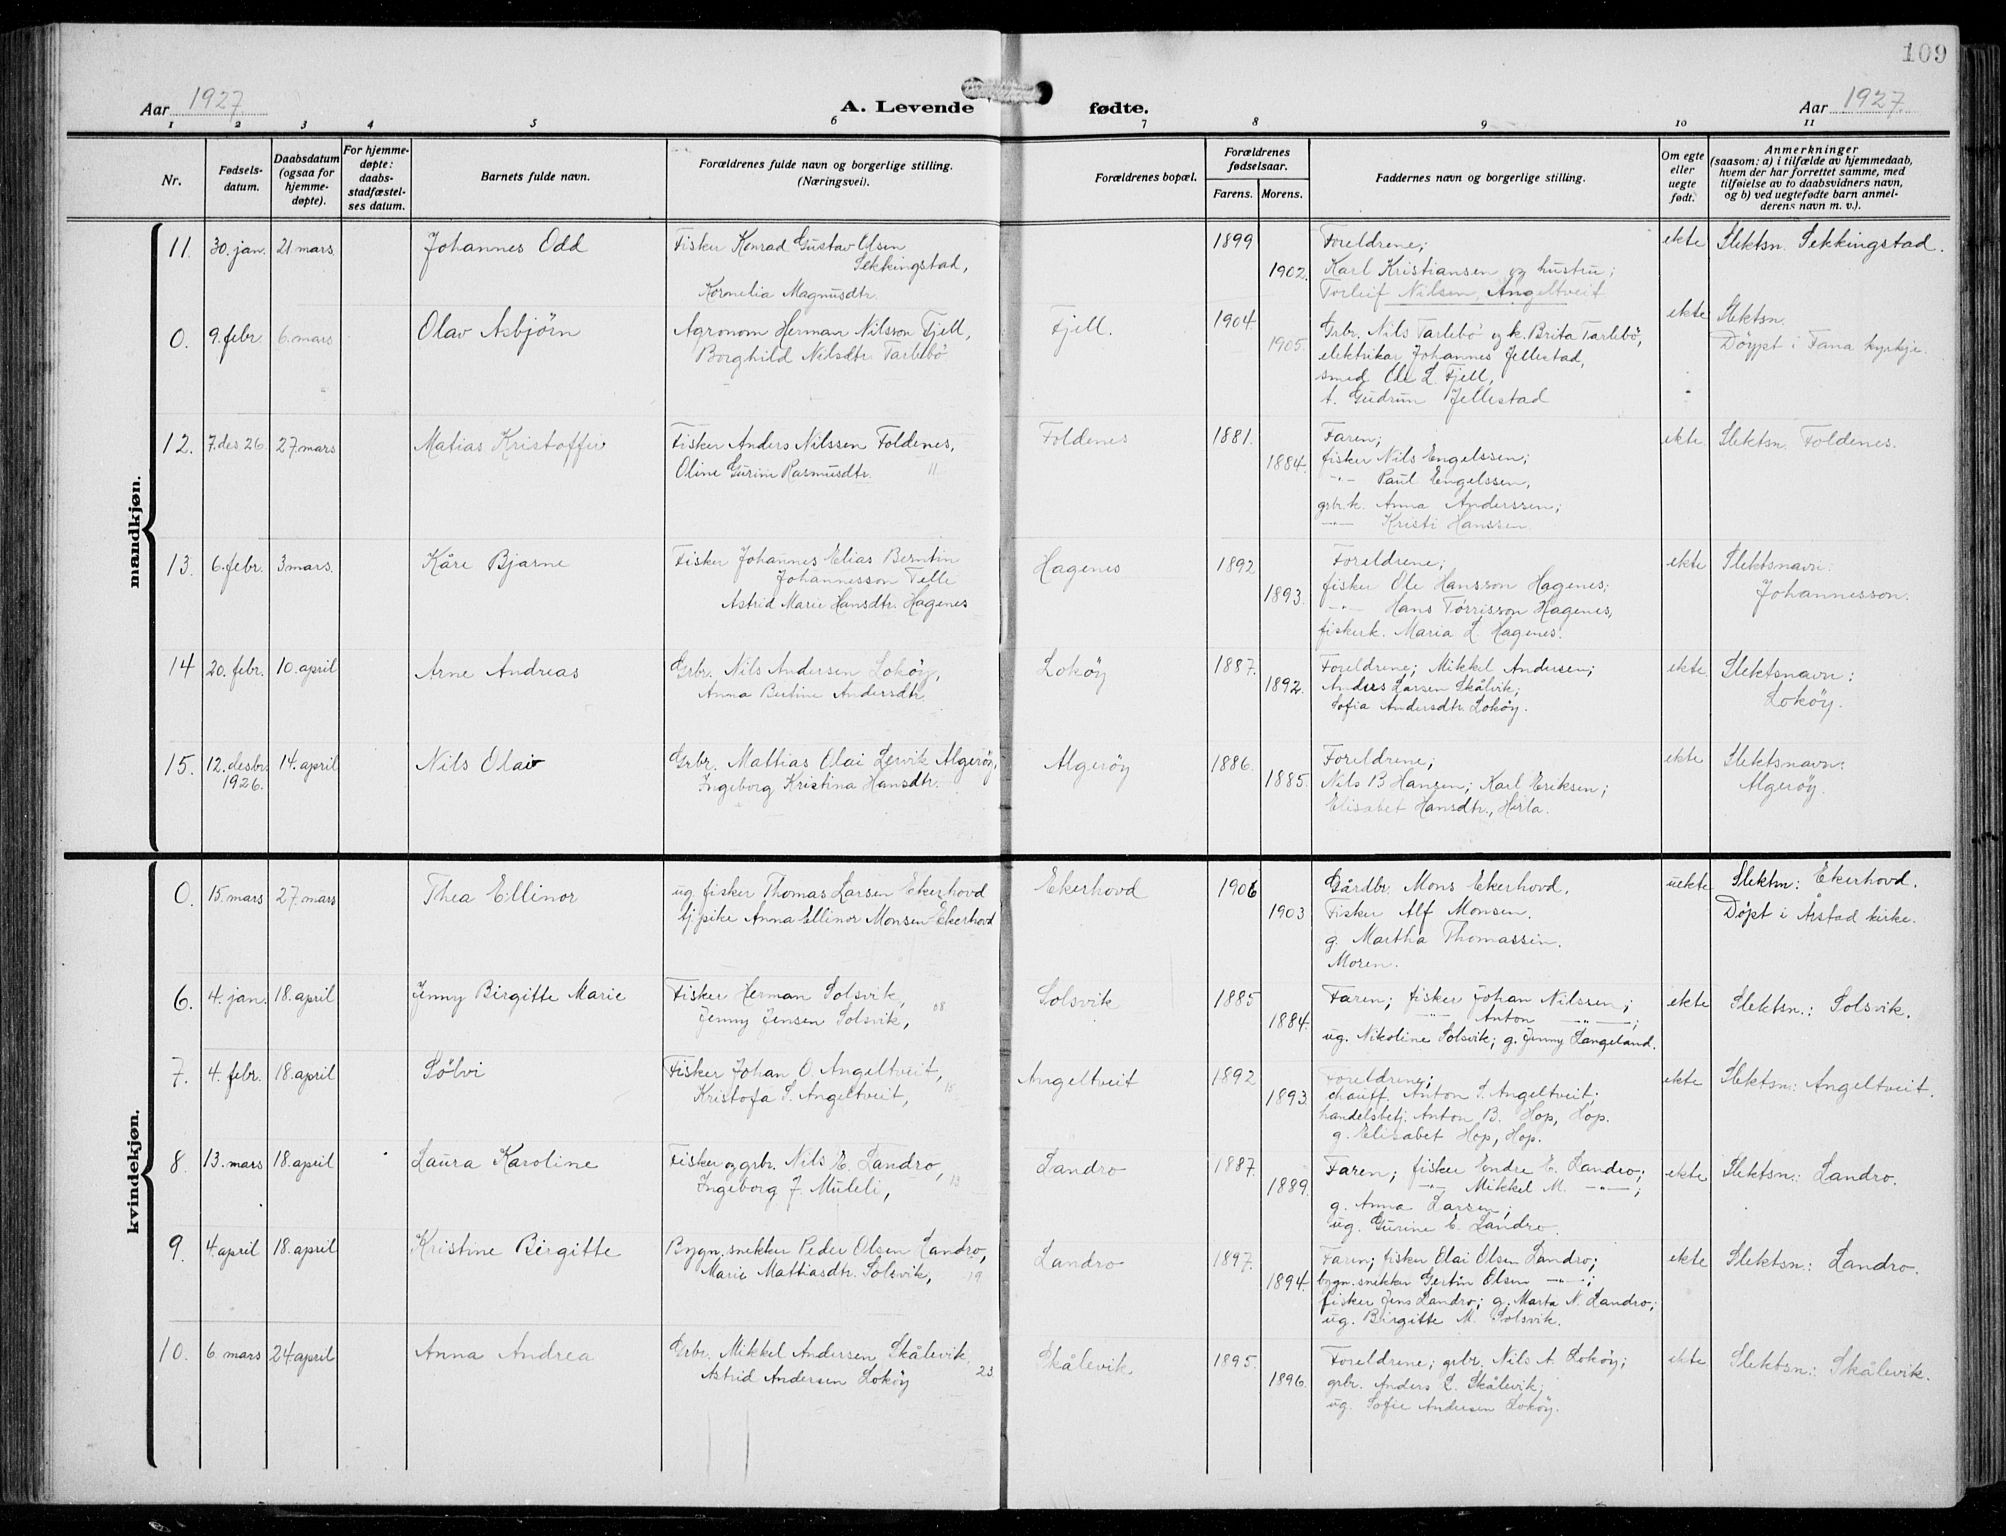 109
Aar 1927.
A. Levende fødte.
Aar 1927.
1 2 3 4 5 6 7 8 9 10 11
Nr.
Fødsels-
datum.
Daabsdatum
(ogsaa for
hjemme-
døpte).
For hjemme-
døpte:
daabs-
stadfæstel-
ses datum.
Barnets fulde navn.
Forældrenes fulde navn og borgerlige stilling.
(Næringsvei).
Forældrenes bopæl.
Forældrenes
fødselsaar.
Farens. Morens.
Faddernes navn og borgerlige stilling.
Om egte
eller
uegte
født.
Anmerkninger
(saasom: a) i tilfælde av hjemmedaab,
hvem der har forrettet samme, med
tilføielse av to daabsvidners navn,
og b) ved uegtefødte barn anmel-
derens navn m. v.).
mandkjøn.
11. 30. jan. 21. mars Johannes Odd
Fisker Konrad Gustav Olsen
Sekkingstad,
Kornelia Magnusdtr.
1899
1902.
Foreldrene;
Karl Kristiansen og hustru;
Torleif Nilsen, Angeltveit
ekte Slektsn. Sekkingstad.
0. 9. febr. 6. mars Olav Asbjørn
Agronom Herman Nilsson Fjell,
Borghild Nilsdtr. Tarlebö
Fjell.
1904.
1905.
Grbr. Nils Tarlebö og k. Brita Tarlebö,
elektrikar Johannes Jellestad,
smed Ole L. Fjell,
t. Gudrun Jellestad
ekte Slektsn.
Döypt i Fana kyrkje.
12. 7. des 26. 27. mars Matias Kristoffer
Fisker Anders Nilssen Foldenes,
Oline Gurine Rasmusdtr. 11
Foldenes
1881.
1884.
Faren;
fisker Nils Engelssen;
-"- Paul Engelssen,
grbr.k. Anna Anderssen;
-"- Kristi Hanssen.
ekte Slektsn. Foldenes.
13. 6. febr. 3 mars. Kåre Bjarne
Fisker Johannes Elias Berntin
Johannesson Telle
Astrid Marie Hansdtr. Hagenes
Hagenes
1892
1893.
Foreldrene;
fisker Ole Hansson Hagenes;
-"- Hans Törrisson Hagenes,
fiskerk. Maria L. Hagenes.
ekte Slektsnavn:
Johannesson.
14 20. febr. 10. april Arne Andreas
Grbr. Nils Andersen Loköy,
Anna Bertine Andersdtr.
Loköy
1887.
1892.
Foreldrene; Mikkel Andersen;
Anders Larsen Skålvik;
Sofia Andersdtr. Loköy.
ekte Slektsnavn:
Loköy.
15. 12. desbr. 1926. 14. april Nils Olav
Grbr. Mattias Olai Lervik Algeröy,
Ingeborg Kristina Hansdtr.
Algeröy
1886.
1885.
Foreldrene;
Nils B Hansen; Karl Eriksen;
Elisabet Hansdtr., Hirla.
ekte Slektsnavn:
Algeröy.
kvindekjøn.
0. 15. mars 27. mars Thea Ellinor
ug. fisker Thomas Larsen Ekerhovd
tj.pike Anna Ellinor Monsen Ekerhovd
Ekerhovd
1906
1903
Gårdbr. Mons Ekerhovd.
Fisker Alf Monsen.
g. Martha Thomassen.
Moren.
uekte Slektsn: Ekerhovd.
Döpt i Årstad kirke.
6. 4. jan. 18. april Jenny Birgitte Marie
Fisker Herman Solsvik,
Jenny Jensen Solsvik, 08.
Solsvik
1885
1884.
Faren; fisker Johan Nilssen;
-"- Anton -"-;
ug. Nikoline Solsvik; g. Jenny Langeland.
ekte Slektsn.: Solsvik.
7. 4. febr. 18. april Sölvi
Fisker Johan O. Angeltveit,
Kristofa S. Angeltveit, 15
Angeltveit
1892
1893.
Foreldrene;
chauff. Anton S. Angeltveit;
handelsbetj. Anton B. Hop, Hop.
g. Elisabet Hop, Hop.
ekte Slektsn.: Angeltveit.
8. 13. mars 18. april Laura Karoline
Fisker og grbr. Nils E. Landro,
Ingeborg J. Muleli, 13
Landro
1887.
1889.
Faren; fisker Endre E. Landro;
-"- Mikkel M. -"-;
g. Anna Larsen;
ug. Gurine E. Landro.
ekte Slektsn.: Landro.
9. 4. april 18. april Kristine Birgitte
Bygn. snekker Peder Olsen Landro,
Marie Mattiasdtr. Solsvik, 19
Landro
1897.
1894.
Faren; fisker Olai Olsen Landro;
bygn. snekker Gertin Olsen -"-;
fisker Jens Landro; g. Marta N. Landro;
ug. Birgitte M. Solsvik.
ekte Slektsn.: Landro.
10. 6. mars 24 april Anna Andrea
Grbr. Mikkel Andersen Skålevik,
Astrid Andersen Loköy 23
Skålevik.
1895.
1896.
Foreldrene; grbr. Nils A. Loköy;
grbr. Anders L. Skålevik;
ug. Sofie Andersen Loköy.
ekte Slektsn.: Skålevik.